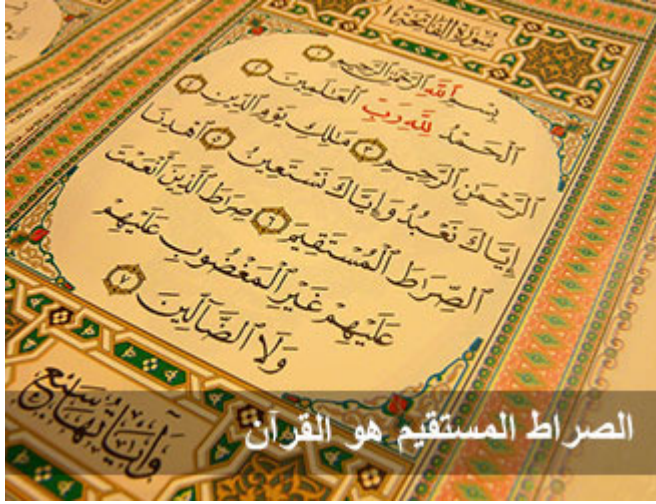 سُورَةُ الفَاتِحَةِ
بِسْمِ ٱللَّهِ ٱلرَّحْمَٰنِ ٱلرَّحِيمِ ١
ٱلْحَمْدُ لِلَّهِ رَبِّ ٱلْعَٰلَمِينَ ٢
ٱلرَّحْمَٰنِ ٱلرَّحِيمِ ٣ مَٰلِكِ يَوْمِ ٱلدِّينِ ٤
إِيَّاكَ نَعْبُدُ وَإِيَّاكَ نَسْتَعِينُ ٥ ٱهْدِنَا
ٱلصِّرَٰطَ ٱلْمُسْتَقِيمَ ٦ صِرَٰطَ ٱلَّذِينَ أَنْعَمْتَ
عَلَيْهِمْ غَيْرِ ٱلْمَغْضُوبِ عَلَيْهِمْ
وَلَا ٱلضَّآلِّينَ ٧
وَآيَاتُهَا سَبْعٌ
الصراط المستقيم هو القرآن